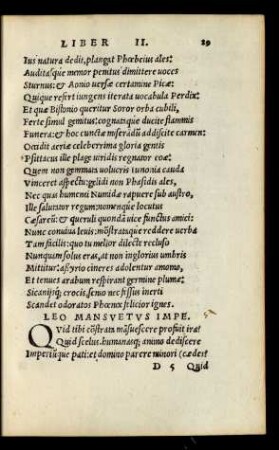 LIBER II. 29
Ius natura dedit, plangat Phœbeius ales:
Auditasque memor penitus dimittere uoces
Sturnus: & Aonio uersæ certamine Picæ:
Quique refert iungens iterata uocabula Perdix:
Et quæ Bistonio queritur Soror orba cubili,
Ferte simul gemitus: cognatasque ducite flammis
Funera: & hoc cunctæ miserādū addiscite carmen:
Occidit aeriæ celeberrima gloria gentis
Psittacus ille plagæ uiridis regnator eoæ:
Quem non gemmata uolucris iunonia cauda
Vinceret aspectu: gelidi non Phasidis ales,
Nec quas humenti Numidæ rapuere sub austro,
Ille salutator regum: nomenque locutus
Cæsareū: & queruli quondā uice functus amici:
Nunc conuiua leuis: mōstrataque reddere uerba
Tam facilis: quo tu melior dilecte recluso
Nunquam solus eras, at non inglorius umbris
Mittitur: assyrio cineres adolentur amomo,
Et tenues arabum respirant germine plumæ:
Sicanijsq; crocis, senio nec fessus inerti
Scandet odoratos Phœnix felicior ignes.
LEO MANSVETVS IMPE.
QVid tibi cōstrata māsuescere profuit ira?
Quid scelus, humanasq; animo dediscere
Imperiūque pati: et domino parere minori (cædes?
D 5 Quid